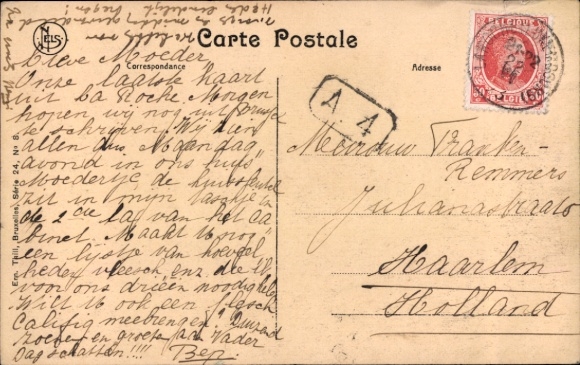 Carte Postale
Correspondance
Adresse
NELS
BELGIQUE
A 4
Lieve Moeder,
Onze laatste kaart
uit La Roche. Morgen
hopen wij nog uit
te schrijven. Wij zien
allen dus Maandag
avond in ons huis
Moedertje, de huissleutel
zit in mijn taschje in
de 2de la van het ca
binet. Maakt U nog
een lijstje van hoeveel
vleesch enz die U
voor ons drieën noodig
Wilt U ook een flesch
Califig meebrengen? Duizend
zoenen en groeten aan Vader
Dag schatten!!!!
Bep.
Mevrouw Franken-
Remmers
Julianastraat
Haarlem
Holland
Ern. Thill, Bruxelles, Série 24, No 8.